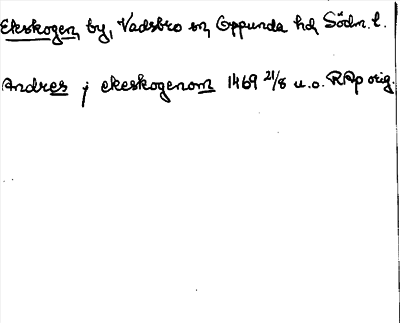 Ekeskogen, by, Vadsbro sn, Oppunda hd, Södm. l.
Andres j ekeskogenom 1469 21/8 u.o. RAp orig.